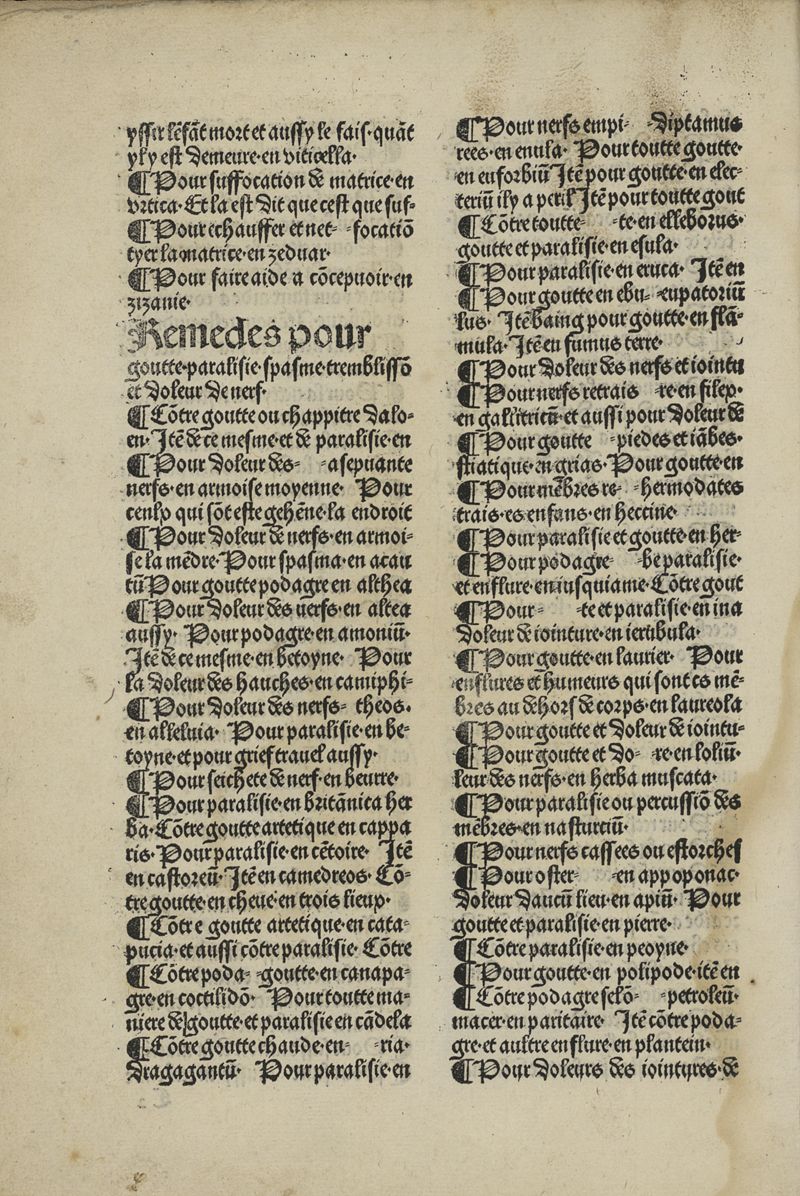 yssir lēfāt mort et aussy le fais·quāt
yl y est demeure·en viticella·
¶Pour suffocation de matrice·en
vrtica·Et la est dit que cest que suf-
¶Pour echauffer et net- -focatiō
tyer la matrice·en zeduar·
¶Pour faire aide a cōcepuoir·en
zizanie·
Remedes pour
goutte·paralisie·spasme·tremblissō
et doleur de nerf·
¶Cōtre goutte ou chappitre dalo-
en· Itē de ce mesme·et de paralisie·en
¶Pour doleur des- -asepuante
nerfs·en armoise moyenne· Pour
cenlx qui sōt este gehēne·la endroit
¶Pour doleur de nerfs·en armoi-
se la mēdre·Pour spasma·en acau
tū Pour goutte podagre en althea
¶Pour doleur des nerfs·en altea
aussy· Pour podagre·en amoniū·
Itē de ce mesme·en betoyne· Pour
la doleur des hauches·en camiphi-
¶Pour doleur des nerfs- theos·
en alleluia· Pour paralisie·en be-
toyne·et pour grief trauel aussy·
¶Pour seichete de nerf·en beurre·
¶Pour paralisie·en britānica her
ba·Cōtre goutte artetique en cappa
ris·Pour paralisie·en cētoire· Itē
en castoreū·Itē en camedreos· Cō-
tre goutte·en cheue·en trois lieux·
¶Cōtre goutte artetique·en cata-
pucia·et aussi cōtre paralisie· Cōtre
¶Cōtre poda- -goutte·en canapa-
gre·en cocilidō· Pour toutte ma-
niere de goutte·et paralisie en cādela
¶Cōtre goutte chaude·en- -ria·
dragagantū· Pour paralisie·en
¶Pour nerfs empi- -diptamus
rees·en enula· Pour toutte goutte·
en euforbiū Itē pour goutte·en elec-
teriū il y a peril Itē pour toutte gout
¶Cōtre toutte- -te·en elleborus·
goutte et paralisie·en esula·
¶Pour paralisie·en eruca· Itē en
¶Pour goutte en ebu- -eupatoriū
lus· Itē baing pour goutte·en flā-
mula·Itē en fumus terre·
¶Pour doleur des nerfs et iointu
¶Pour nerfs retrais -re·en filep·
en gallitricū·et aussi pour doleur de
¶Pour goutte -piedes et iābes·
sciatique·en grias·Pour goutte·en
¶Pour mēbres re- -hermodates
trais·es enfans·en hectine·
¶Pour paralisie et goutte·en her-
¶Pour podagre- -be paralisie·
et enflure·en iusquiame·Cōtre gout
¶Pour- -te et paralisie·en iua
doleur de iointure·en ierubula·
¶Pour goutte·en laurier· Pour
enflures et humeurs qui sont es mē-
bres au dehors de corps·en laureola
¶Pour goutte et doleur de iointu-
¶Pour goutte et do- -re·en loliū·
leur des nerfs·en herba muscata·
¶Pour paralisie ou percussiō des
mēbres·en nasturciū·
¶Pour nerfs cassees ou estorches
¶Pour oster- -en appoponac·
doleur daucū lieu·en apiū· Pour
goutte et paralisie·en pierre·
¶Cōtre paralisie·en peoyne·
¶Pour goutte·en polipode·itē en
¶Cōtre podagre selō- -petroleū·
macer·en paritaire· Itē cōtre poda-
gre·et aultre enflure·en plantein·
¶Pour doleurs des iointures·de